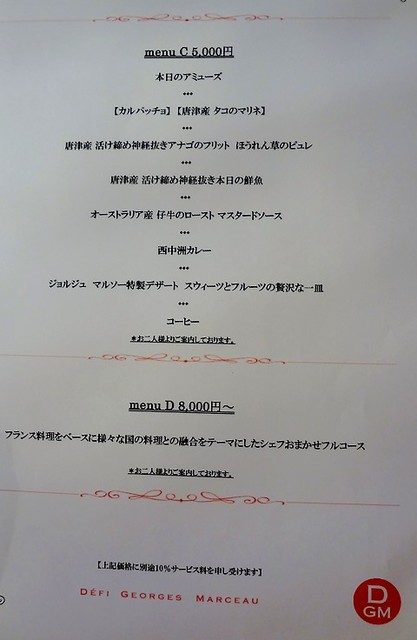 menu C 5,000円
本日のアミューズ
***
【カルパッチョ】【唐津産 タコのマリネ】
***
唐津産 活け締め神経抜きアナゴのフリット ほうれん草のピュレ
***
唐津産 活け締め神経抜き本日の鮮魚
***
オーストラリア産 仔牛のロースト マスタードソース
***
西中洲カレー
***
ジョルジュ マルソー特製デザート スウィーツとフルーツの贅沢な一皿
***
コーヒー
*お二人様よりご案内しております。
menu D 8,000円～
フランス料理をベースに様々な国の料理との融合をテーマにしたシェフおまかせフルコース
*お二人様よりご案内しております。
【上記価格に別途10%サービス料を申し受けます】
DÉFI GEORGES MARCEAU
D
GM